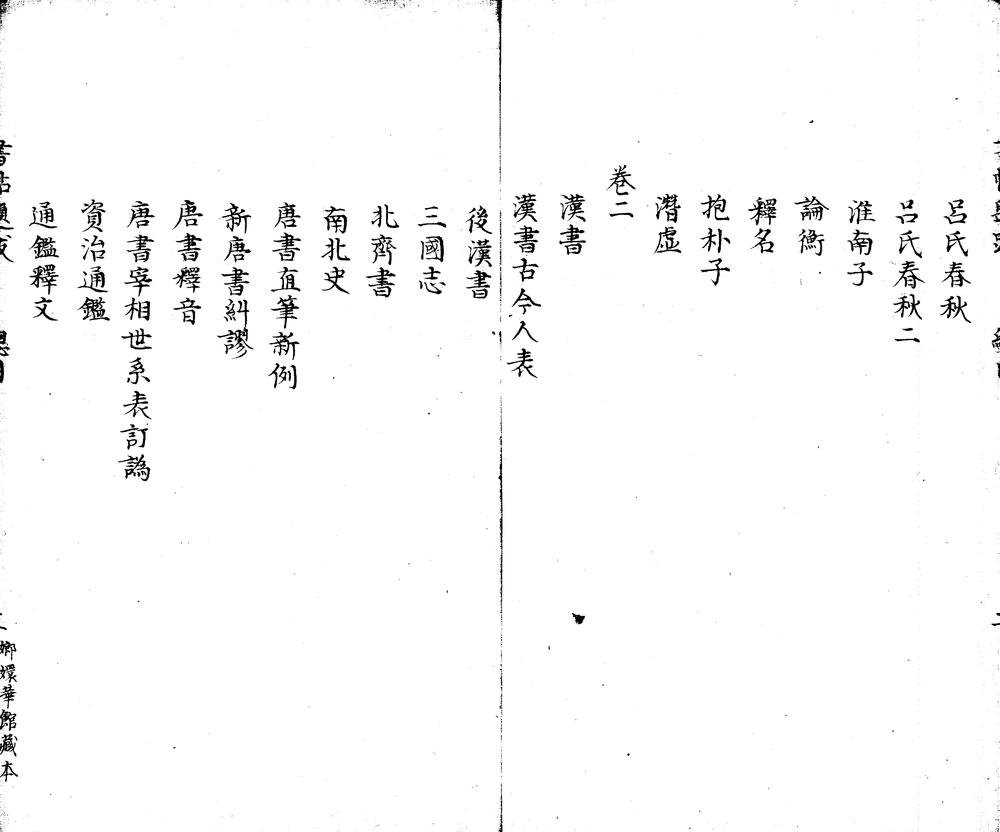 呂氏春秋
呂氏春秋二
淮南子
論衡
釋名
抱朴子
潛虛
卷二
漢書
漢書古今人表
後漢書
三國志
北齊書
南北史
唐書直筆新例
新唐書糾謬
唐書釋音
唐書宰相世系表訂譌
資治通鑑
通鑑釋文
嫏嬛華館藏本